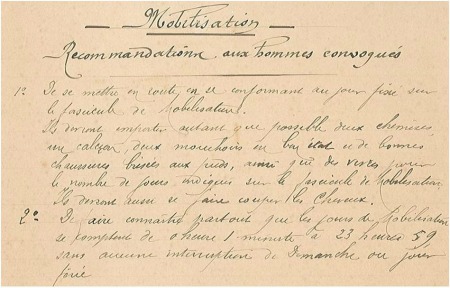 Mobilisation
Recommandations aux hommes convoqués
1o De se mettre en route en se conformant au jour fixé sur
le fascicule de Mobilisation.
Ils devront emporter autant que possible deux chemises
un caleçon, deux mouchoirs en bon état et de bonnes
chaussures brisées aux pieds, ainsi que des vivres pour
le nombre de jours indiqués sur le fascicule de Mobilisation
Ils devront aussi se faire couper les cheveux.
2o De faire connaître partout que les jours de Mobilisation
se comptent de 0 heure 1 minute à 23 heures 59
sans aucune interruption de Dimanche ou jour
férié